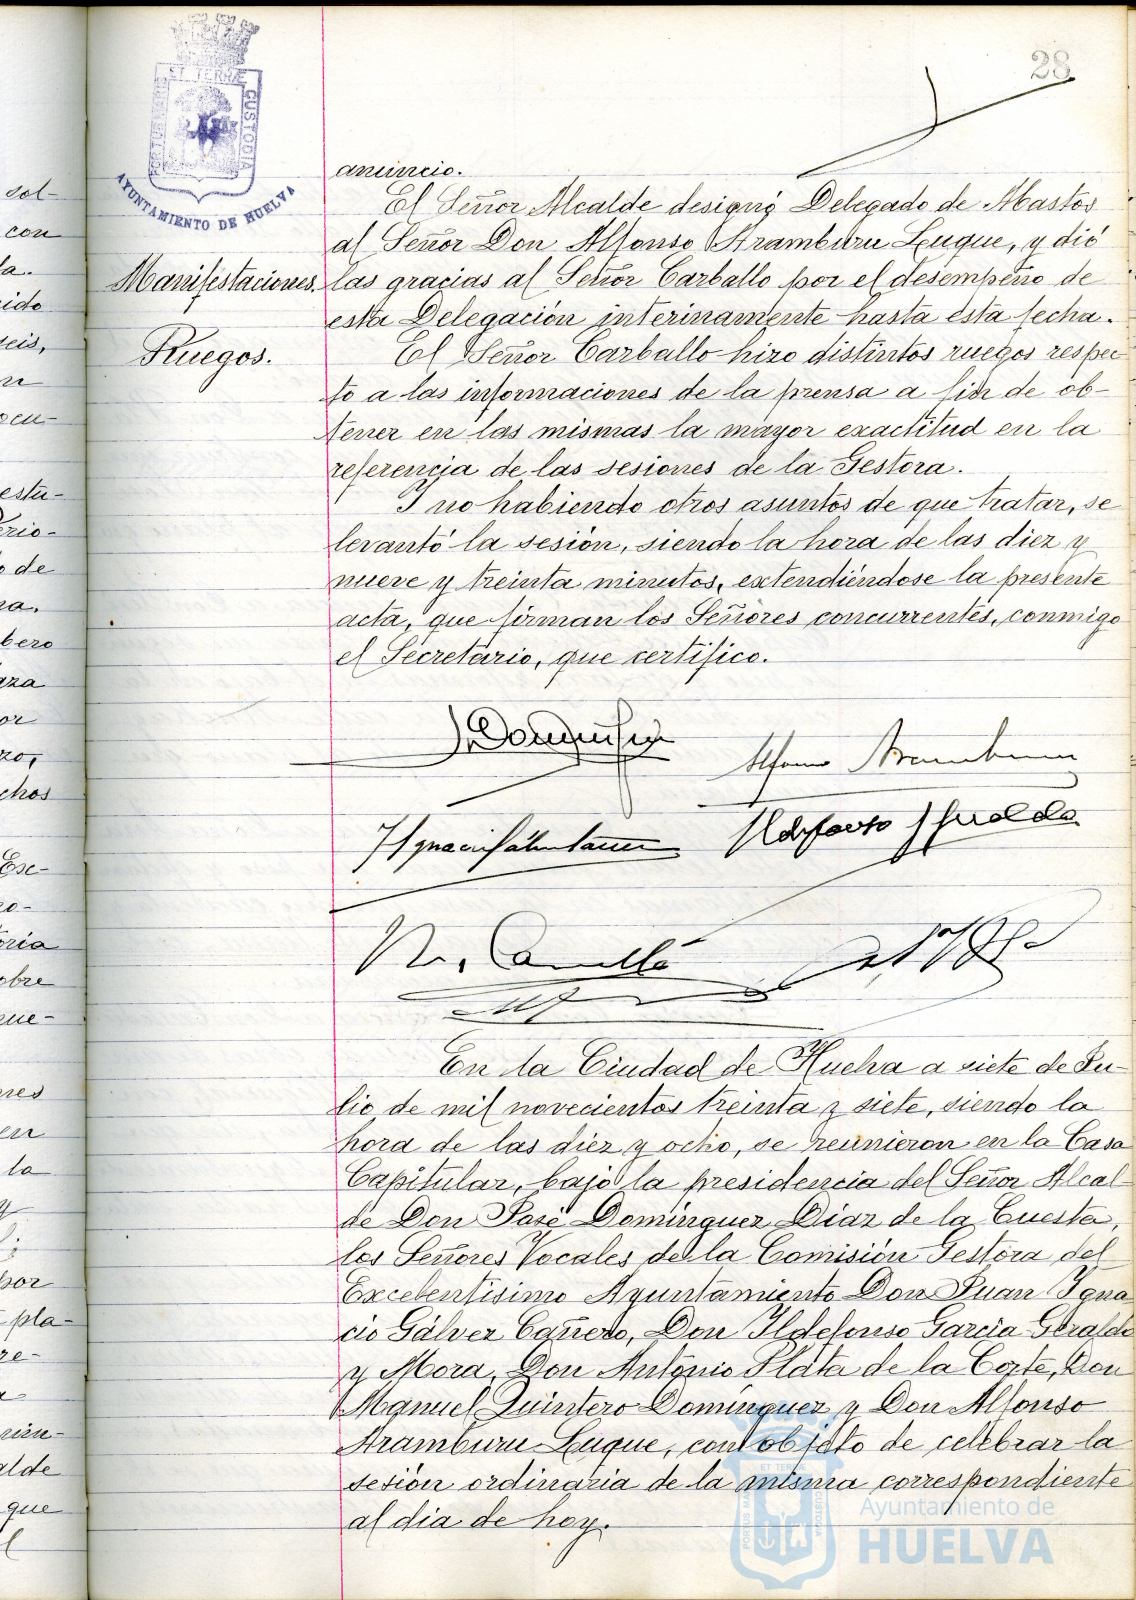 28
ET TERRÆ
CUSTODIA
AYUNTAMIENTO DE HUELVA
anuncio.
El Señor Alcalde designó Delegado de Abastos
al Señor Don Alfonso Aramburu Luque, y dió
Manifestaciones. las gracias al Señor Carballo por el desempeño de
esta Delegación interinamente hasta esta fecha.
Ruegos. El Señor Carballo hizo distintos ruegos respec
to a las informaciones de la prensa a fin de ob-
tener en las mismas la mayor exactitud en la
referencia de las sesiones de la Gestora.
Y no habiendo otros asuntos de que tratar, se
levantó la sesión, siendo la hora de las diez y
nueve y treinta minutos, extendiéndose la presente
acta, que firman los Señores concurrentes, conmigo
el Secretario, que certifico.
Alfonso Aramburu
Ildefonso Geraldo
En la Ciudad de Huelva a siete de Ju-
lio de mil novecientos treinta y siete, siendo la
hora de las diez y ocho, se reunieron en la Casa
Capitular, bajo la presidencia del Señor Alcal-
de Don José Domínguez Díaz de la Cuesta,
los Señores Vocales de la Comisión Gestora del
Excelentísimo Ayuntamiento Don Juan Igna
cio Gálvez Cañero, Don Ildefonso García Geraldo
y Mora, Don Antonio Plata de la Corte, Don
Manuel Quintero Domínguez y Don Alfonso
Aramburu Luque, con objeto de celebrar la
sesión ordinaria de la misma correspondiente
al dia de hoy.
Ayuntamiento de
HUELVA
sol-
con
la.
cido
seis,
en
ocu-
estu-
erio-
o de
na.
bero
aza
or
zo,
chos
Esc-
ro-
oria
obre
que-
nes
en
la
y
por
pla-
re-
rin-
alde
que